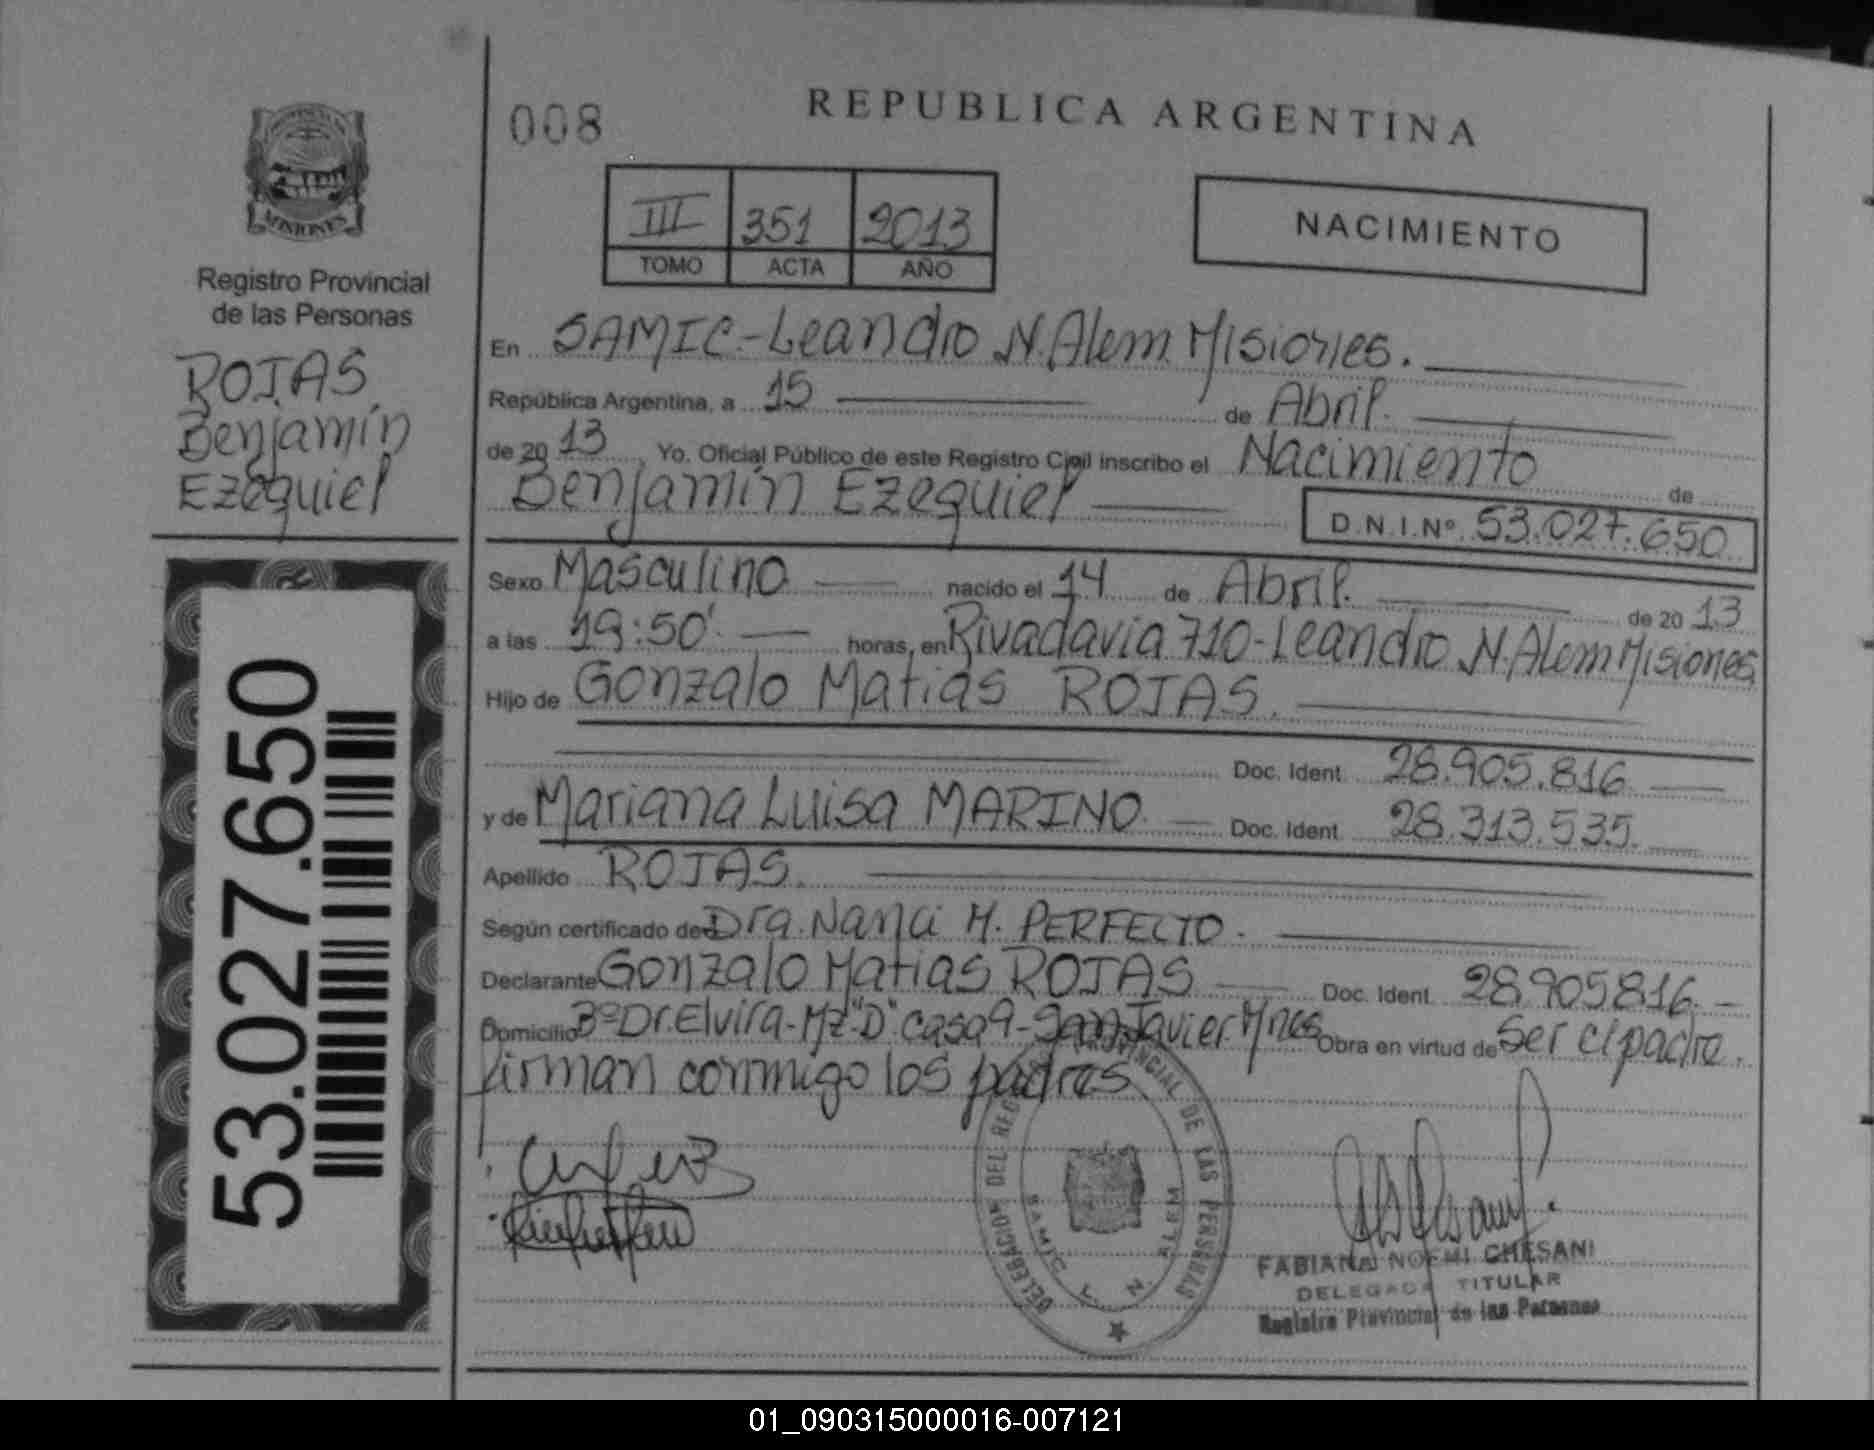 008
REPUBLICA ARGENTINA
III 351 2013
TOMO ACTA AÑO
NACIMIENTO
MISIONES
Registro Provincial
de las Personas
ROJAS
Benjamín
Ezequiel
53.027.650
En SAMIC-Leandro N. Alem Misiones.
República Argentina, a 15 de Abril.
de 2013 Yo. Oficial Público de este Registro Civil inscribo el Nacimiento de
Benjamín Ezequiel
D.N.I.Nº 53.027.650
Sexo Masculino nacido el 14 de Abril. de 2013
a las 19:50' horas, en Rivadavia 710-Leandro N. Alem Misiones
Hijo de Gonzalo Matias ROJAS.
Doc. Ident. 28.905.816
y de Mariana Luisa MARINO Doc. Ident. 28.313.535.
Apellido ROJAS.
Según certificado de Dra. Nanci M. PERFECTO.
Declarante Gonzalo Matias ROJAS Doc. Ident. 28.905.816.
Domicilio 3º Dr. Elvira-Mz."D" casa 9-San Javier Mnes Obra en virtud de ser el padre.
firman conmigo los padres
DELEGACION DEL REGISTRO PROVINCIAL DE LAS PERSONAS
SAMIC L. N. ALEM
FABIANA NOEMI CHESANI
DELEGADA TITULAR
Registro Provincial de las Personas
01_090315000016-007121